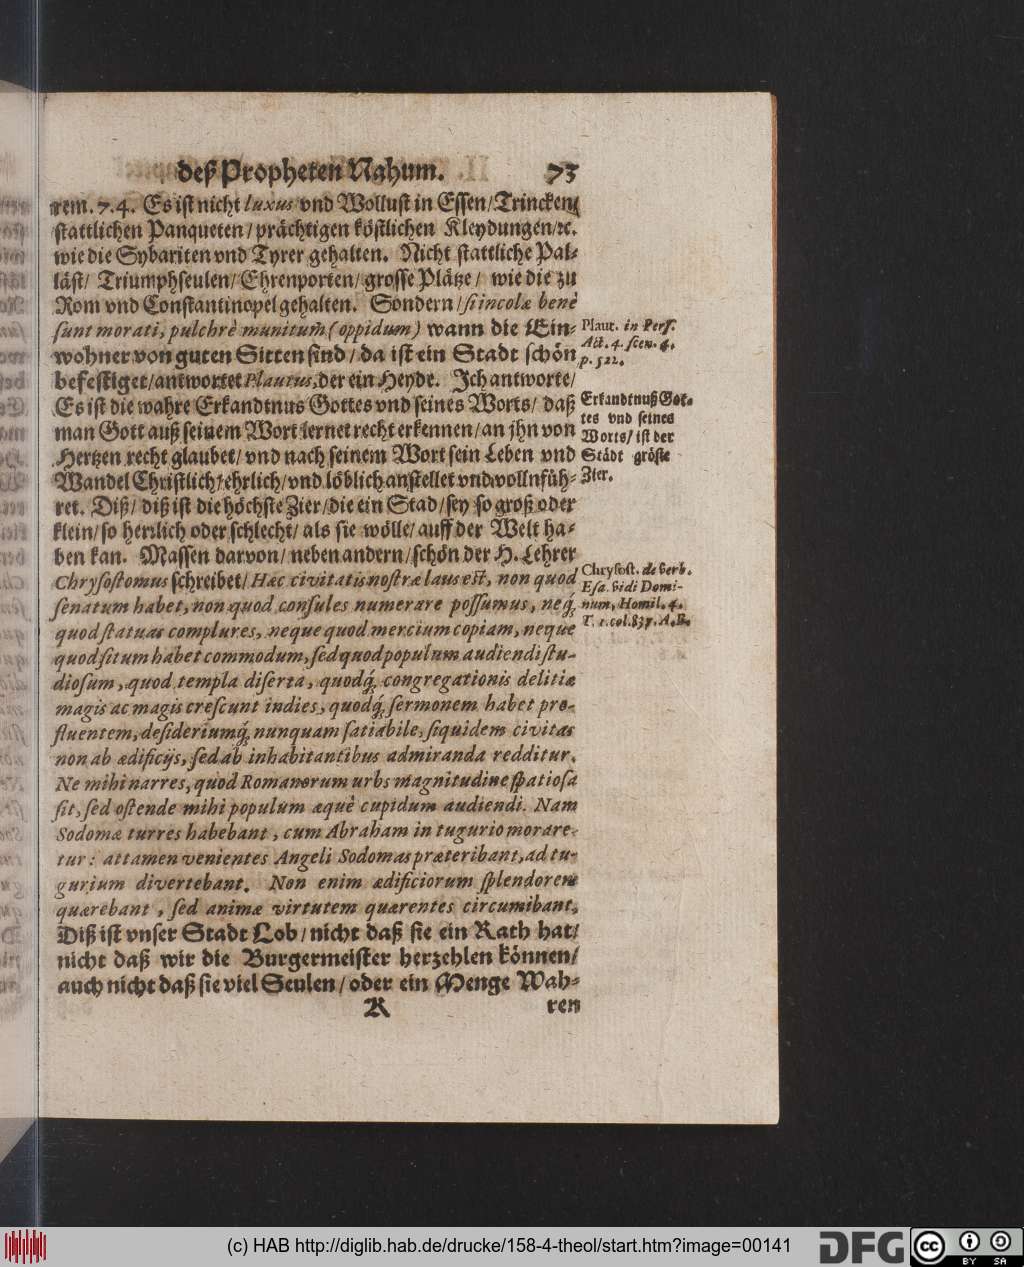 deß Propheten Nahum. 73
rem. 7. 4. Es ist nicht luxus vnd Wollust in Essen/ Trincken/
stattlichen Panqueten / prächtigen köstlichen Kleydungen/ ꝛc.
wie die Sybariten vnd Tyrer gehalten. Nicht stattliche Pal-
läst/ Triumphseulen/ Ehrenporten/ grosse Plätze/ wie die zu
Rom vnd Constantinopel gehalten. Sondern / si incolæ benè
sunt morati, pulchrè munitum (oppidum) wann die Ein-
wohner von guten Sitten sind / da ist ein Stadt schön
befestiget/ antwortet Plautus, der ein Heyde. Ich antworte/
Es ist die wahre Erkandtnus Gottes vnd seines Worts/ daß
man Gott auß seinem Wort lernet recht erkennen/ an jhn von
Hertzen recht glaubet/ vnd nach seinem Wort sein Leben vnd
Wandel Christlich/ ehrlich/ vnd löblich anstellet vnd vollnfüh-
ret. Diß/ diß ist die höchste Zier/ die ein Stad/ sey so groß oder
klein/ so herꝛlich oder schlecht/ als sie wölle/ auff der Welt ha-
ben kan. Massen darvon/ neben andern/ schön der H. Lehrer
Chrysostomus schreibet/ Hæc civitatis nostræ laus est, non quod
senatum habet, non quod consules numerare possumus, neq́
quod statuas complures, neque quod mercium copiam, neque
quod situm habet commodum, sed quod populum audiendi stu-
diosum, quod templa diserta, quodq́ congregationis delitiæ
magis ac magis crescunt indies, quodq́ sermonem habet pro-
fluentem, desideriumq́ nunquam satiabile, siquidem civitas
non ab ædificijs, sed ab inhabitantibus admiranda redditur.
Ne mihi narres, quod Romanorum urbs magnitudine spatiosa
sit, sed ostende mihi populum æquè cupidum audiendi. Nam
Sodomæ turres habebant, cum Abraham in tugurio morare-
tur: attamen venientes Angeli Sodomas præteribant, ad tu-
gurium divertebant. Non enim ædificiorum splendorem
quærebant, sed animæ virtutem quærentes circumibant.
Diß ist vnser Stadt Lob / nicht daß sie ein Rath hat/
nicht daß wir die Burgermeister herzehlen können/
auch nicht daß sie viel Seulen / oder ein Menge Wah-
K ren
Plaut. in Pers.
Act. 4. scen. 4.
p. 522.
Erkandtnuß Got-
tes vnd seines
Worts/ ist der
Städt gröste
Zier.
Chrysost. de verb.
Esa. vidi Domi-
num, Homil. 4.
T. 1. col. 837. A. B.
(c) HAB http://diglib.hab.de/drucke/158-4-theol/start.htm?image=00141
DFG
cc
BY SA